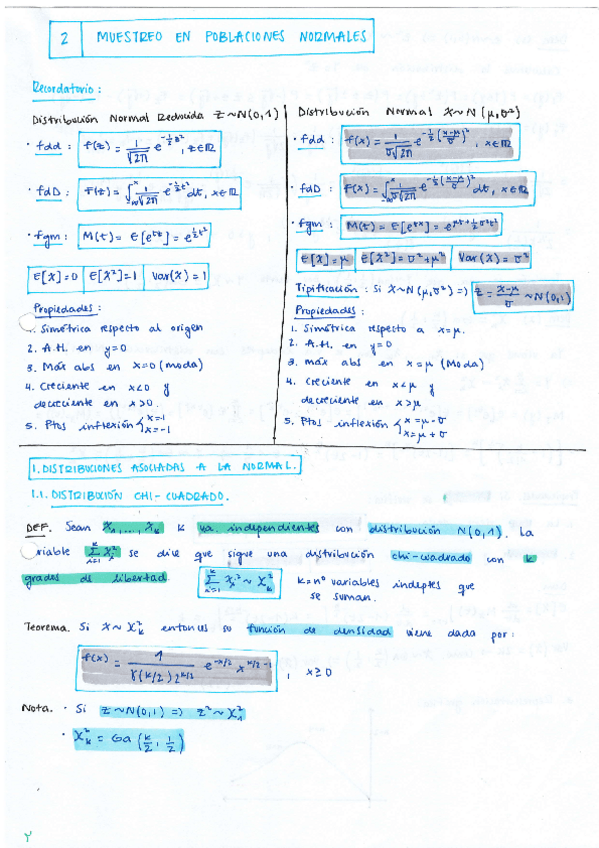 2 MUESTREO EN POBLACIONES NORMALES
Recordatorio:
Distribución Normal Reducida Z~N(0,1)
· fdd: f(z) = 1/√2π e^{-½z²}, z∈ℝ
· fdD: F(z) = ∫_{-∞}^{x} 1/√2π e^{-½t²} dt, x∈ℝ
· fgm: M(t) = E[e^{tz}] = e^{½t²}
E[X]=0 E[X²]=1 Var(X)=1
Propiedades:
1. Simétrica respecto al origen
2. A.H. en y=0
3. Máx abs en x=0 (moda)
4. Creciente en x<0 y
decreciente en x>0.
5. Ptos inflexión x=1
x=-1
Distribución Normal X~N(μ,σ²)
· fdd: f(x) = 1/σ√2π e^{-½(x-μ/σ)²}, x∈ℝ
· fdD: F(x) = ∫_{-∞}^{x} 1/σ√2π e^{-½(x-μ/σ)²} dt, x∈ℝ
· fgm: M(t) = E[e^{tx}] = e^{μt+½σ²t²}
E[X]=μ E[X²]=σ²+μ² Var(X)=σ²
Tipificación: Si X~N(μ,σ²) => Z = x-μ/σ ~ N(0,1)
Propiedades:
1. Simétrica respecto a x=μ.
2. A.H. en y=0
3. Máx abs en x=μ (Moda)
4. Creciente en x<μ y
decreciente en x>μ
5. Ptos inflexión x=μ-σ
x=μ+σ
1. DISTRIBUCIONES ASOCIADAS A LA NORMAL.
1.1. DISTRIBUCIÓN CHI-CUADRADO.
DEF. Sean X₁,...,X_k k va. independientes con distribución N(0,1). La
variable Σ_{i=1}^{k} X_i² se dice que sigue una distribución chi-cuadrado con k
grados de libertad.
Σ_{i=1}^{k} X_i² ~ χ_k² k=nº variables indeptes que
se suman.
Teorema. Si X~χ_k² entonces su función de densidad viene dada por:
f(x) = 1/γ(k/2) 2^{k/2} e^{-x/2} x^{k/2-1}, x≥0
Nota. · Si Z~N(0,1) => Z²~χ₁²
· χ_k² = Ga(k/2, 1/2)